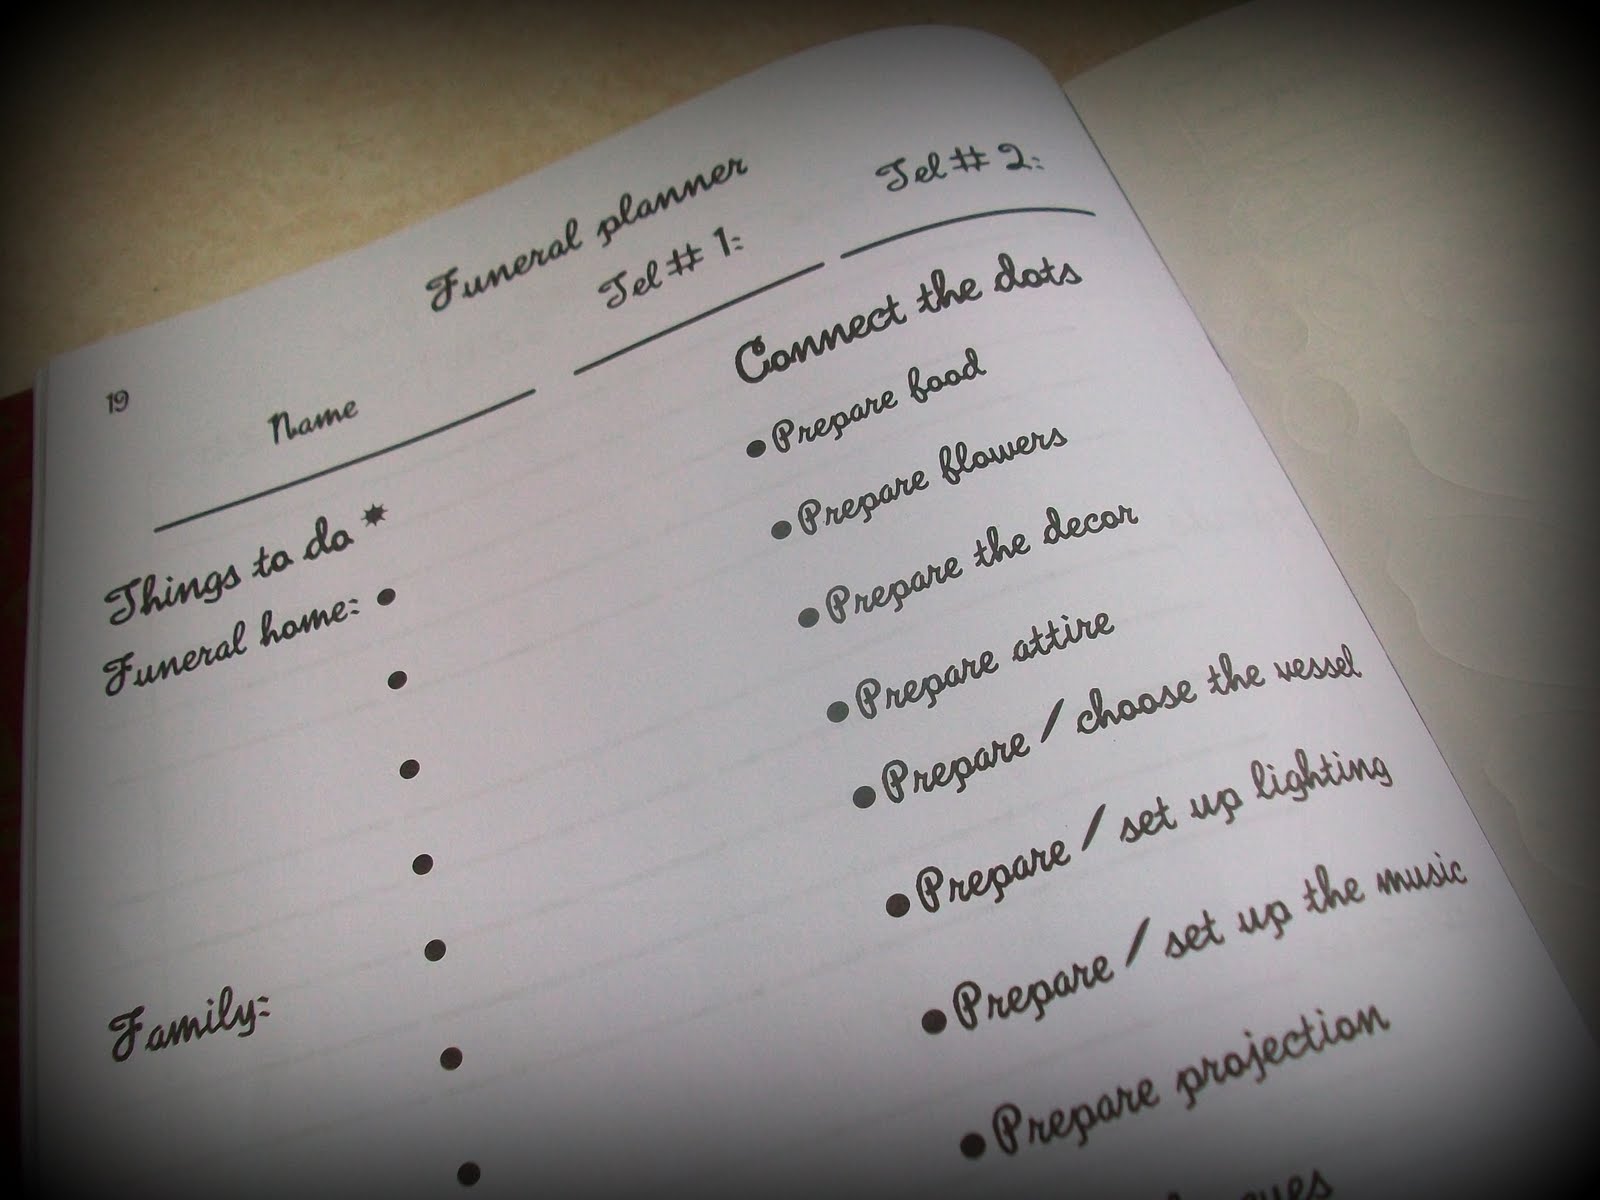 Funeral planner
19
Name
Tel # 1:
Tel # 2:
Things to do *
Connect the dots
Funeral home: •
• Prepare food
• Prepare flowers
• Prepare the decor
• Prepare attire
• Prepare / choose the vessel
• Prepare / set up lighting
Family:
• Prepare / set up the music
• Prepare projection